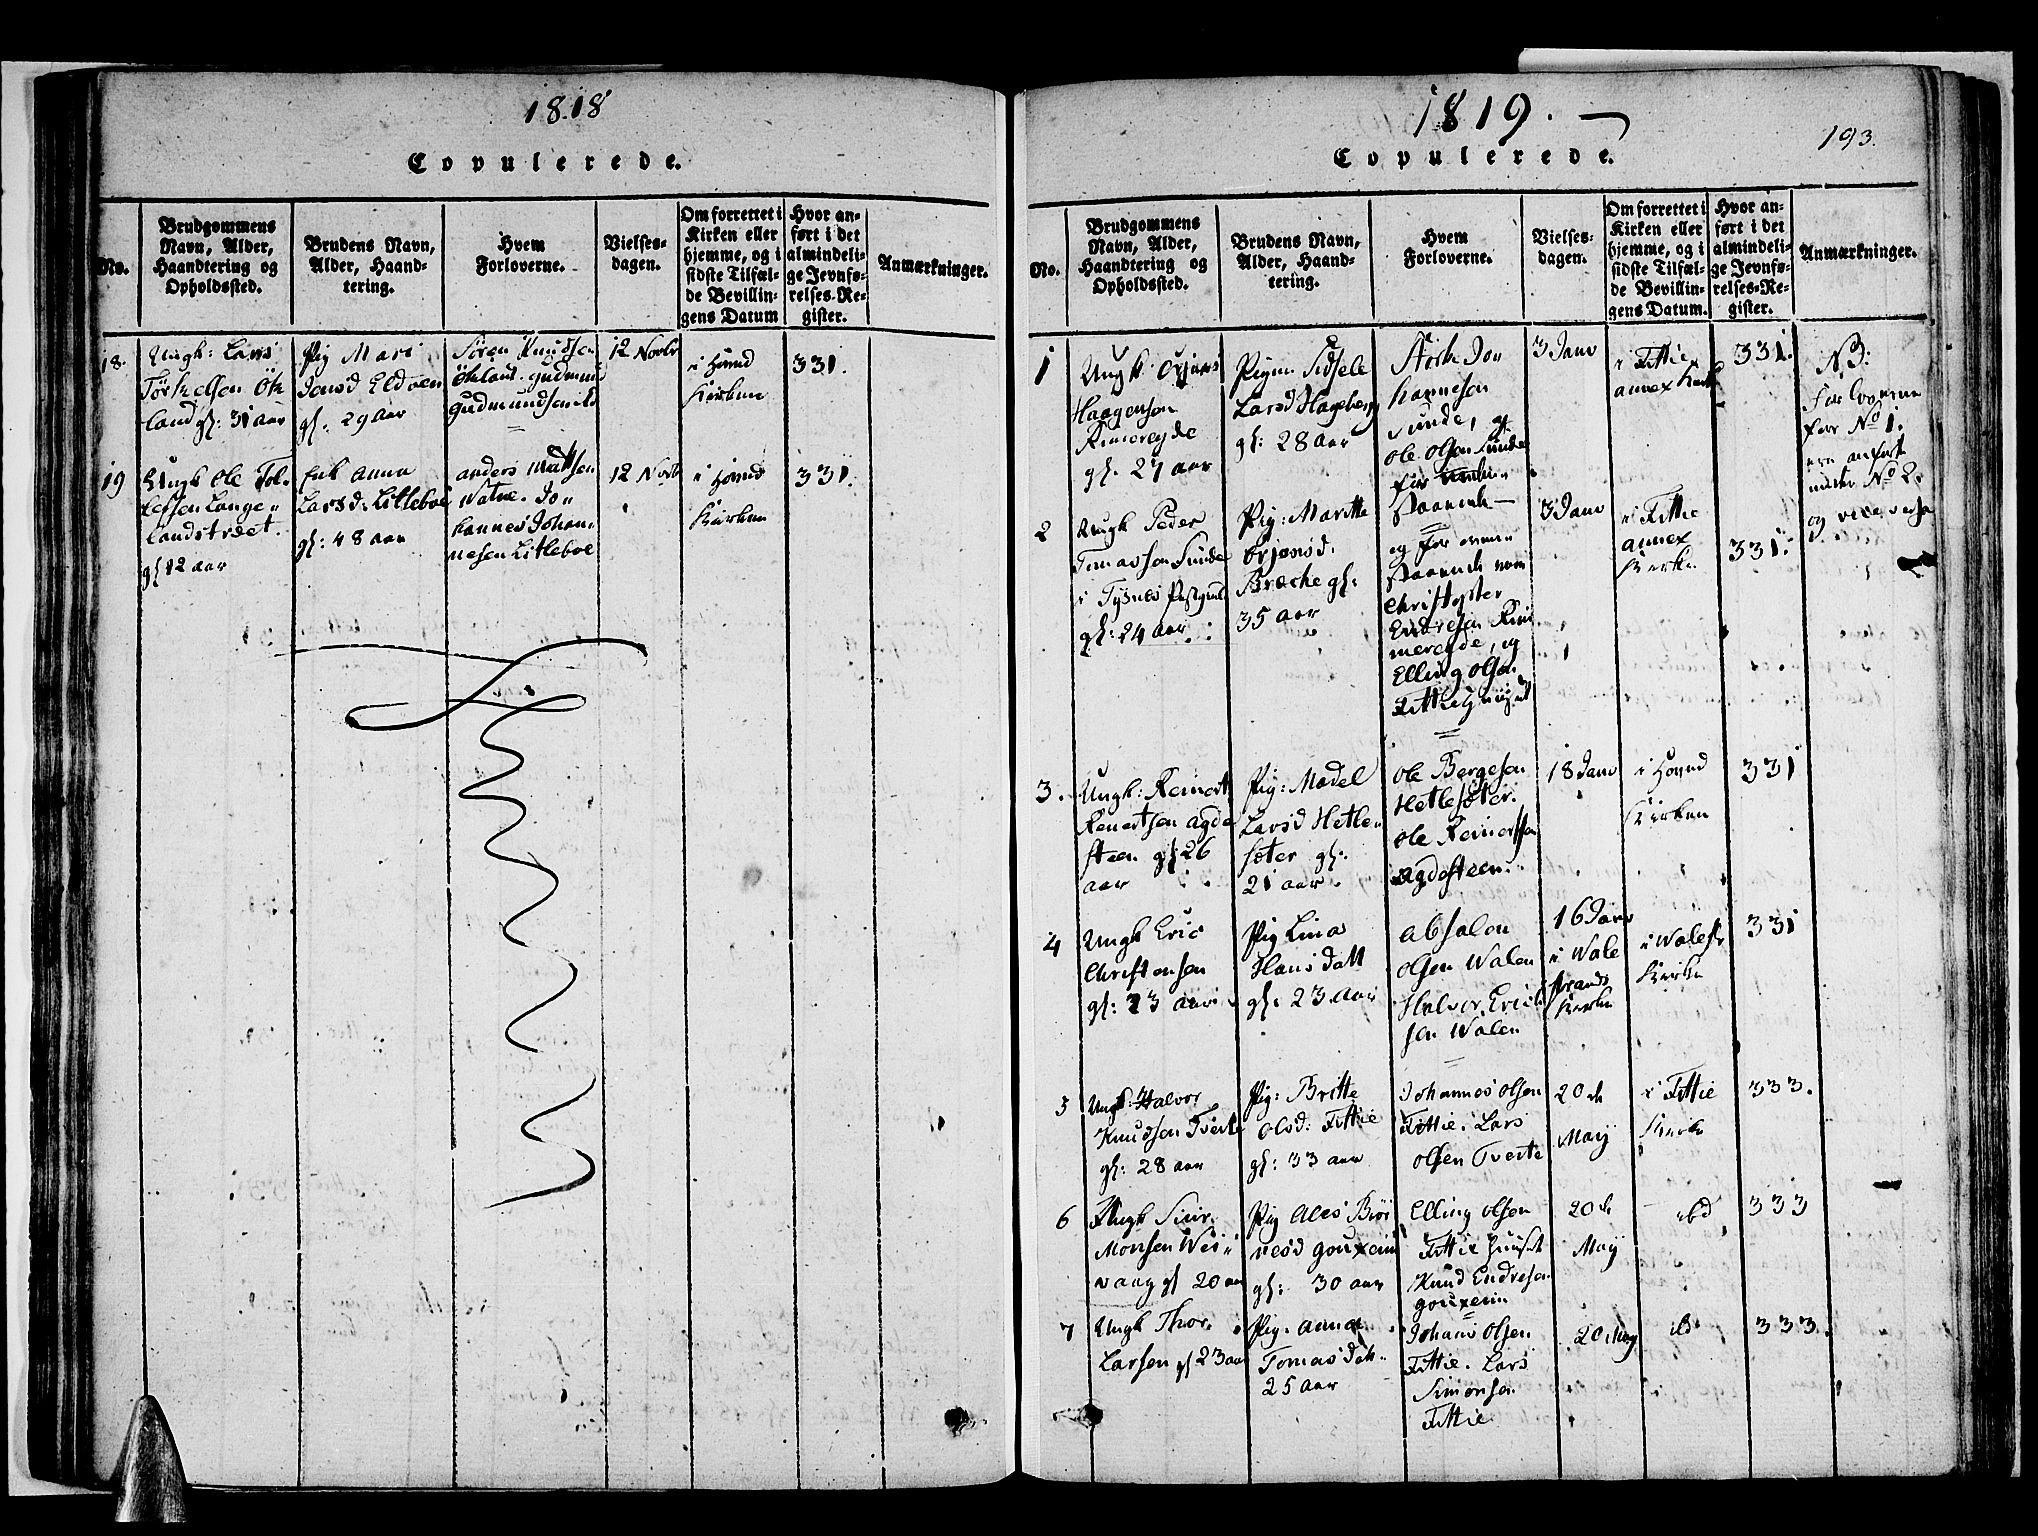 1818
Copulerede.
No.
Brudgommens
Navn, Alder,
Haandtering og
Opholdssted.
Brudens Navn,
Alder, Haand-
tering.
Hvem
Forloverne.
Vielses-
dagen.
Om forrettet i
Kirken eller
hjemme, og i
sidste Tilfæl-
de Bevillin-
gens Datum
Hvor an-
ført i det
almindeli-
ge Jevnfø-
relses-Re-
gister.
Anmærkninger.
18.
Ungk: Lars
Törkelsen Ök
land gl: 31 aar
Pig Mari
Jonsd Eldöen
gl. 29 aar
Sören Knudsen
Ökland. Gudmund
Gudmundsen
12 Novbr
i Hovud
Kirken
331.
19
Ungk Ole Tol-
lefsen Lange-
landstræet.
gl 42 aar
Enk Anna
Larsd: Litleboe
gl: 48 aar
Anders
Watne. Jo-
hannes Johan-
nesen Litleboe
12 Novbr
i Hovud
Kirken
331.
1819.
193.
Copulerede.
No.
Brudgommens
Navn, Alder,
Haandtering og
Opholdssted.
Brudens Navn,
Alder, Haand-
tering.
Hvem
Forloverne.
Vielses-
dagen.
Om forrettet i
Kirken eller
hjemme, og i
sidste Tilfæl-
de Bevillin-
gens Datum.
Hvor an-
ført i det
almindeli-
ge Jevnfø-
relses-Re-
gister.
Anmærkninger.
1
Ungk Örjans
Haagensen
Rimereyde
gl. 27 aar
Pigen Sidsele
Larsd Hageberg
gl: 28 aar
Störke Jo-
hannesen
Sunde, og
Ole Olsen Sunde
for
Parrende
3 Janv
i Fittie
annex Kirke
331.
NB:
Forloverne
for No 1.
ere anført
under No 2.
og vice versa
2
Ungk Peder
Tomassen Sunde
i Tysnes Prstgield
gl: 24 aar
Pig: Maritte
Örjansd.
Bræcke gl:
35 aar
og for
Parrende
Christopher
Endresen Rim
mereyde, og
Elling Olsen
Fittie Huuset
3 Janv
i Fittie
annex
Kirke
331.
3.
Ungk: Reinert
Reinertsen Agde
steen gl 26
aar
Pig: Madel
Larsd Hetle-
söter gl.
21 aar.
Ole Bergesen
Hetlesöter.
Ole Reinertsen
Agdesteen.
18 Janv
i Hovud
Kirken
331
4
Ungk Eric
Christensen
gl: 23 aar
Pig Lina
Hans datt
gl. 23 aar
Absalon
Olsen Walen
Halvor Erich
sen Walen
16 Janv
i Wale
strands
Kirke
i Walestr
Kirke
331
5
Ungk: Halvor
Knudsen Tverte
gl: 28 aar
Pig: Britte
Olsd: Fittie
gl: 33 aar
Johannes Olsen
Fittie. Lars
Olsen Tverte
20 de
May
i Fittie
Kirke
333.
6
Ungk Siur
Monsen Wei-
vaag gl 20 aar
Pig Ales Böi
resd
gl: 30 aar
Elling Olsen
Fittie Huuset
Knud Endresen
20 de
May
ibd
333
7
Ungk Thor
Larsen gl 23 aar
Pig. Anna
Tomas datt.
25 aar
Johans Olsen
Fittie. Lars
Simonsen
Fittie
20 May
ibd
333.